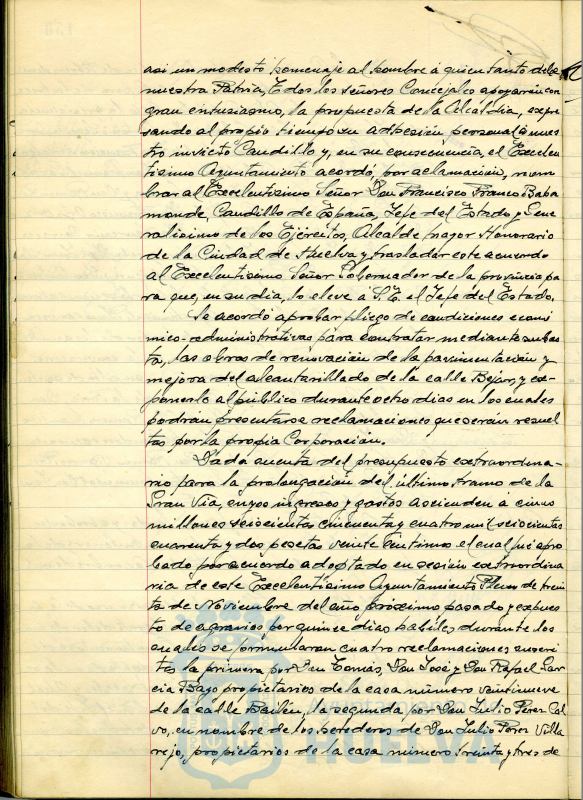 asi un modesto homenaje al hombre á quien tanto debe
nuestra Patria, Todos los señores Concejales apoyaron con
gran entusiasmo, la propuesta de la Alcaldia, expre
sando al propio tiempo su adhesión personal á nues
tro invicto Caudillo y, en su consecuencia, el Excelen
tisimo Ayuntamiento acordó, por aclamación, nom
brar al Excelentisimo Señor Don Francisco Franco Baha
monde, Caudillo de España, Jefe del Estado y Gene
ralisimo de los Ejércitos, Alcalde mayor Honorario
de la Ciudad de Huelva y trasladar este acuerdo
al Excelentisimo Señor Gobernador de la provincia pa
ra que, en su dia, lo eleve a S.E. el Jefe del Estado.
Se acordó aprobar pliego de condiciones econó
mico-administrativas para contratar mediante subas
ta, las obras de renovación de la pavimentación y
mejora del alcantarillado de la calle Bejar, y ex-
ponerlo al público durante ocho dias en los cuales
podrán presentarse reclamaciones que serán resuel
tas por la propia Corporación.
Dada cuenta del presupuesto extraordina-
rio para la prolongación del último tramo de la
Gran Via, cuyos ingresos y gastos ascienden á cinco
millones seiscientas cincuenta y cuatro mil seiscientas
cuarenta y dos pesetas veinte centimos el cual fué apro
bado por acuerdo adoptado en sesión extraordina
ria de este Excelentisimo Ayuntamiento Pleno de trein
ta de Noviembre del año próximo pasado y expues
to de agravios por quince dias hábiles durante los
cuales se formularon cuatro reclamaciones suscri
tas la primera por Don Tomás, Don José y Don Rafael Gar
cia Bago propietarios de la casa número veintinueve
de la calle Bailén, la segunda por Don Julio Perez Cal
vo, en nombre de los herederos de Don Julio Perez Villa
rejo, propietarios de la casa número treinta y tres de